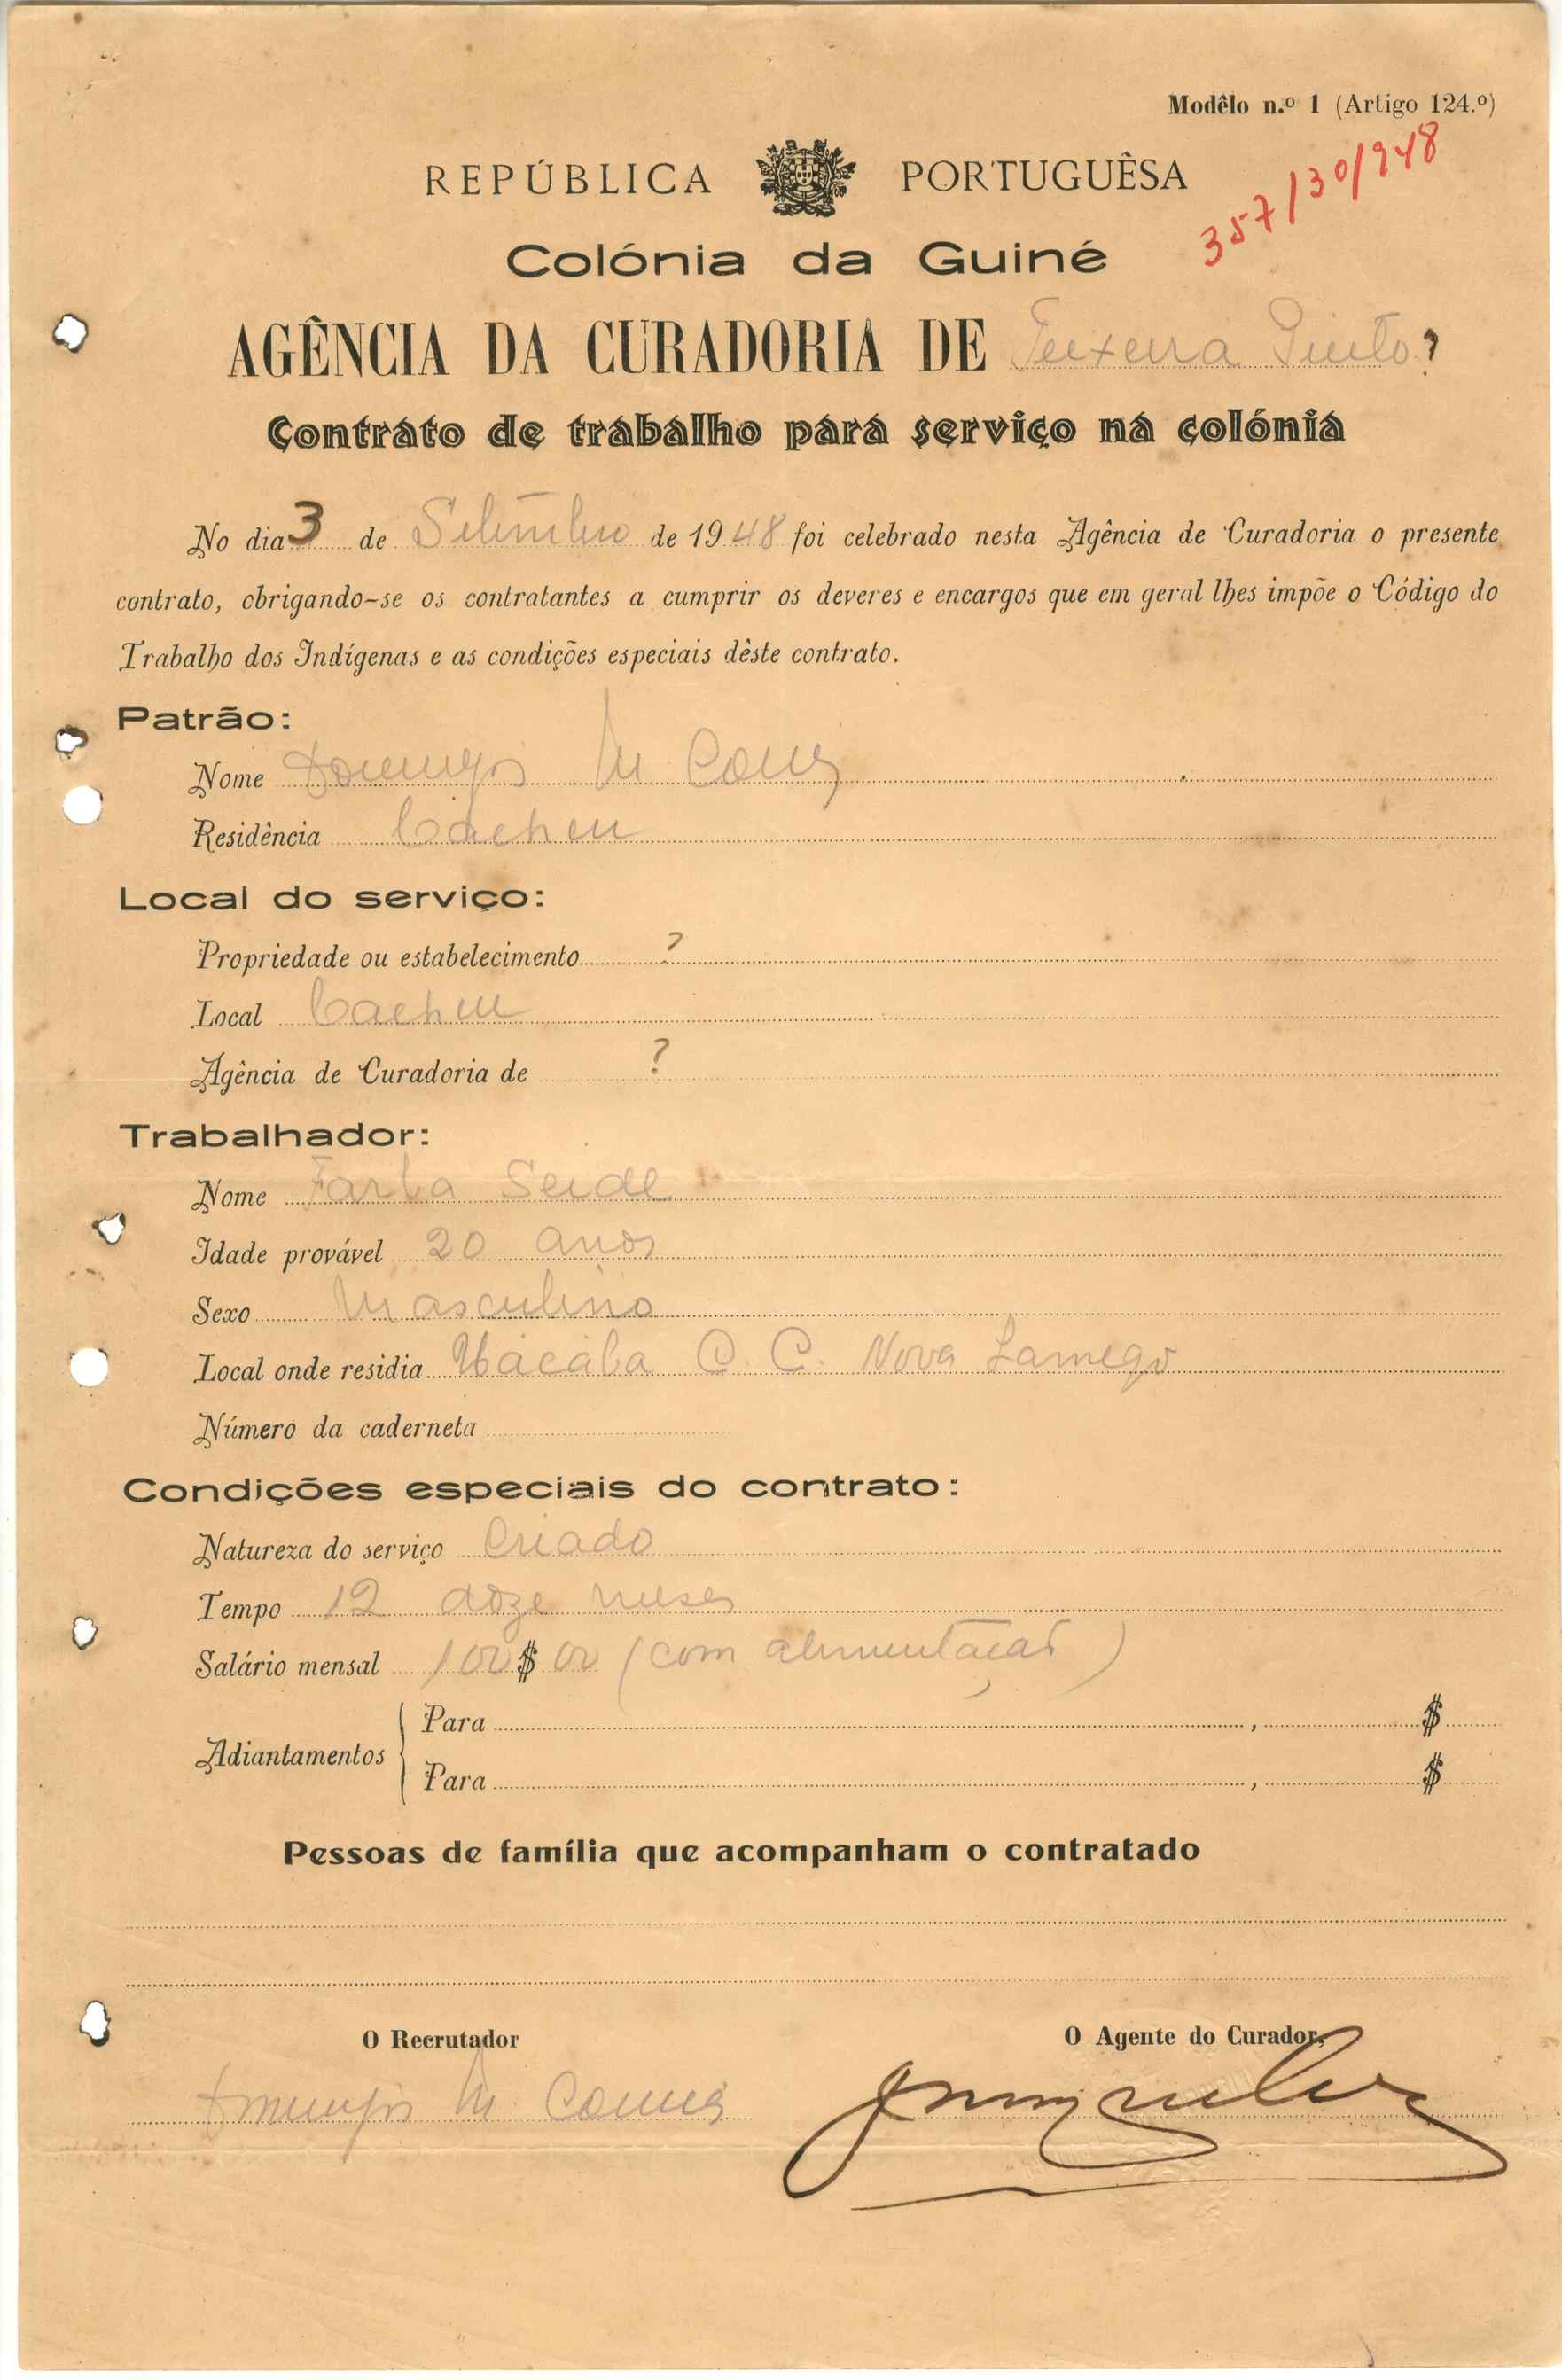 Modêlo n.º 1 (Artigo 124.º)
357/30/948
REPÚBLICA PORTUGUÊSA
Colónia da Guiné
AGÊNCIA DA CURADORIA DE Teixeira Pinto ?
Contrato de trabalho para serviço na colónia
No dia 3 de Setembro de 1948 foi celebrado nesta Agência de Curadoria o presente
contrato, obrigando-se os contratantes a cumprir os deveres e encargos que em geral lhes impõe o Código do
Trabalho dos Indígenas e as condições especiais dêste contrato.
Patrão:
Nome Domingos M
Residência Cacheu
Local do serviço:
Propriedade ou estabelecimento ?
Local Cacheu
Agência de Curadoria de ?
Trabalhador:
Nome Farba Seidе
Idade provável 20 anos
Sexo Masculino
Local onde residia C. C. Nova Lamego
Número da caderneta
Condições especiais do contrato:
Natureza do serviço Criado
Tempo 12 doze meses
Salário mensal 100$00 (com alimentação)
Adiantamentos { Para , $
Para , $
Pessoas de família que acompanham o contratado
O Recrutador O Agente do Curador,
Domingos M